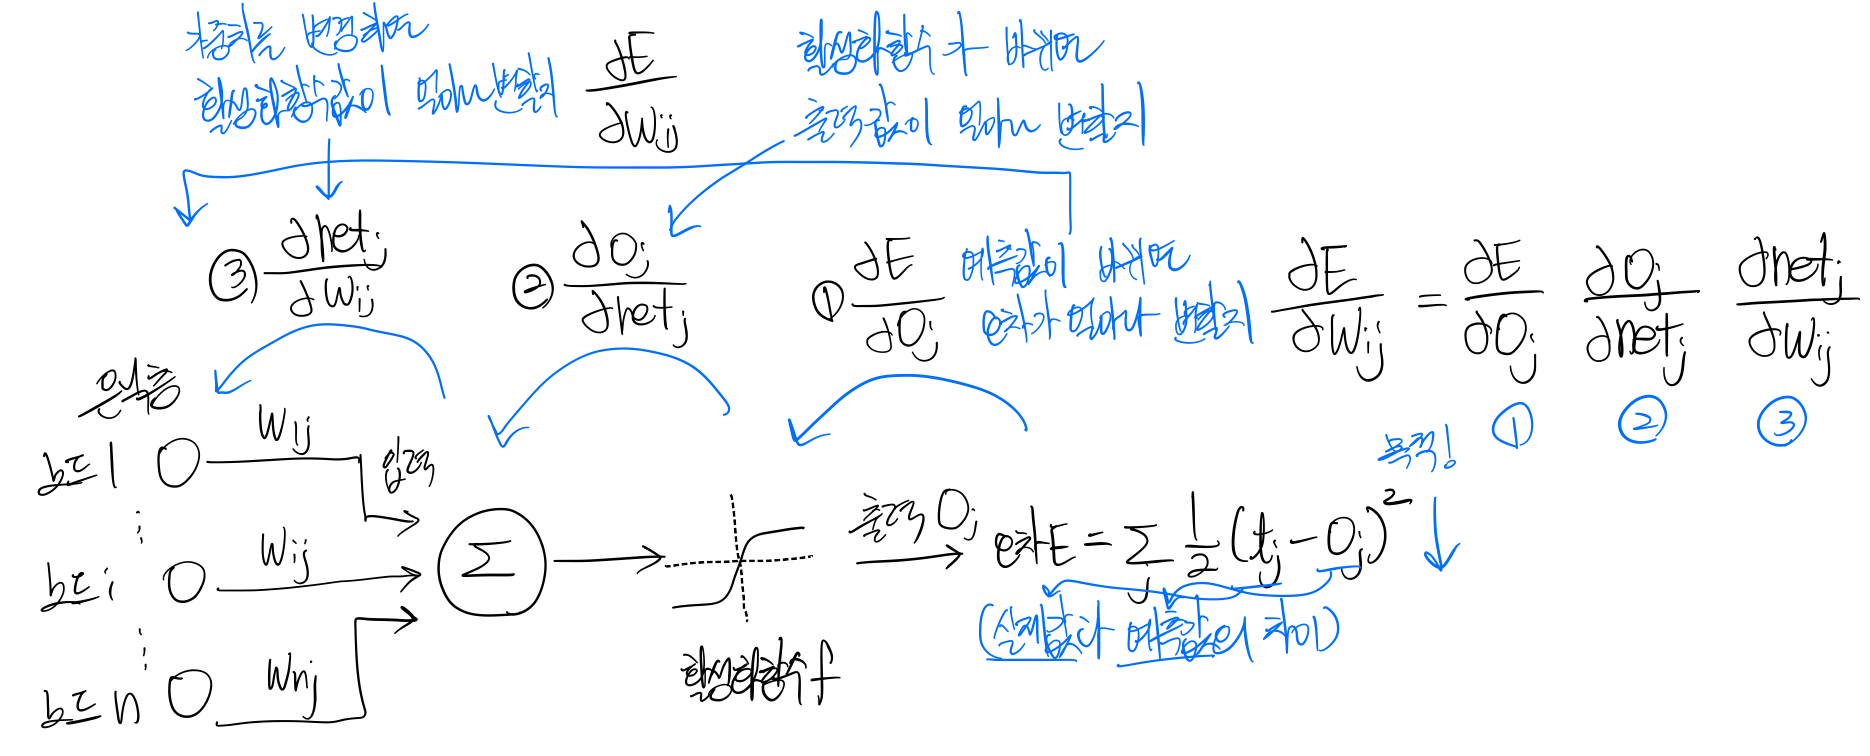 가중치를 변경하면
활성화함수값이 얼마나 변할지
∂E/∂Wij
활성화함수가 바뀌면
출력값이 얼마나 변할지
③ ∂netj/∂Wij
② ∂Oj/∂netj
① ∂E/∂Oj
예측값이 바뀌면
오차가 얼마나 변할지
∂E/∂Wij = ∂E/∂Oj ∂Oj/∂netj ∂netj/∂Wij
① ② ③
은닉층
노드1 W1j
입력
노드i Wij
노드n Wnj
Σ
활성화함수f
출력 Oj
오차E = Σj 1/2(tj-Oj)²
목적!
(실제값과 예측값의 차이)